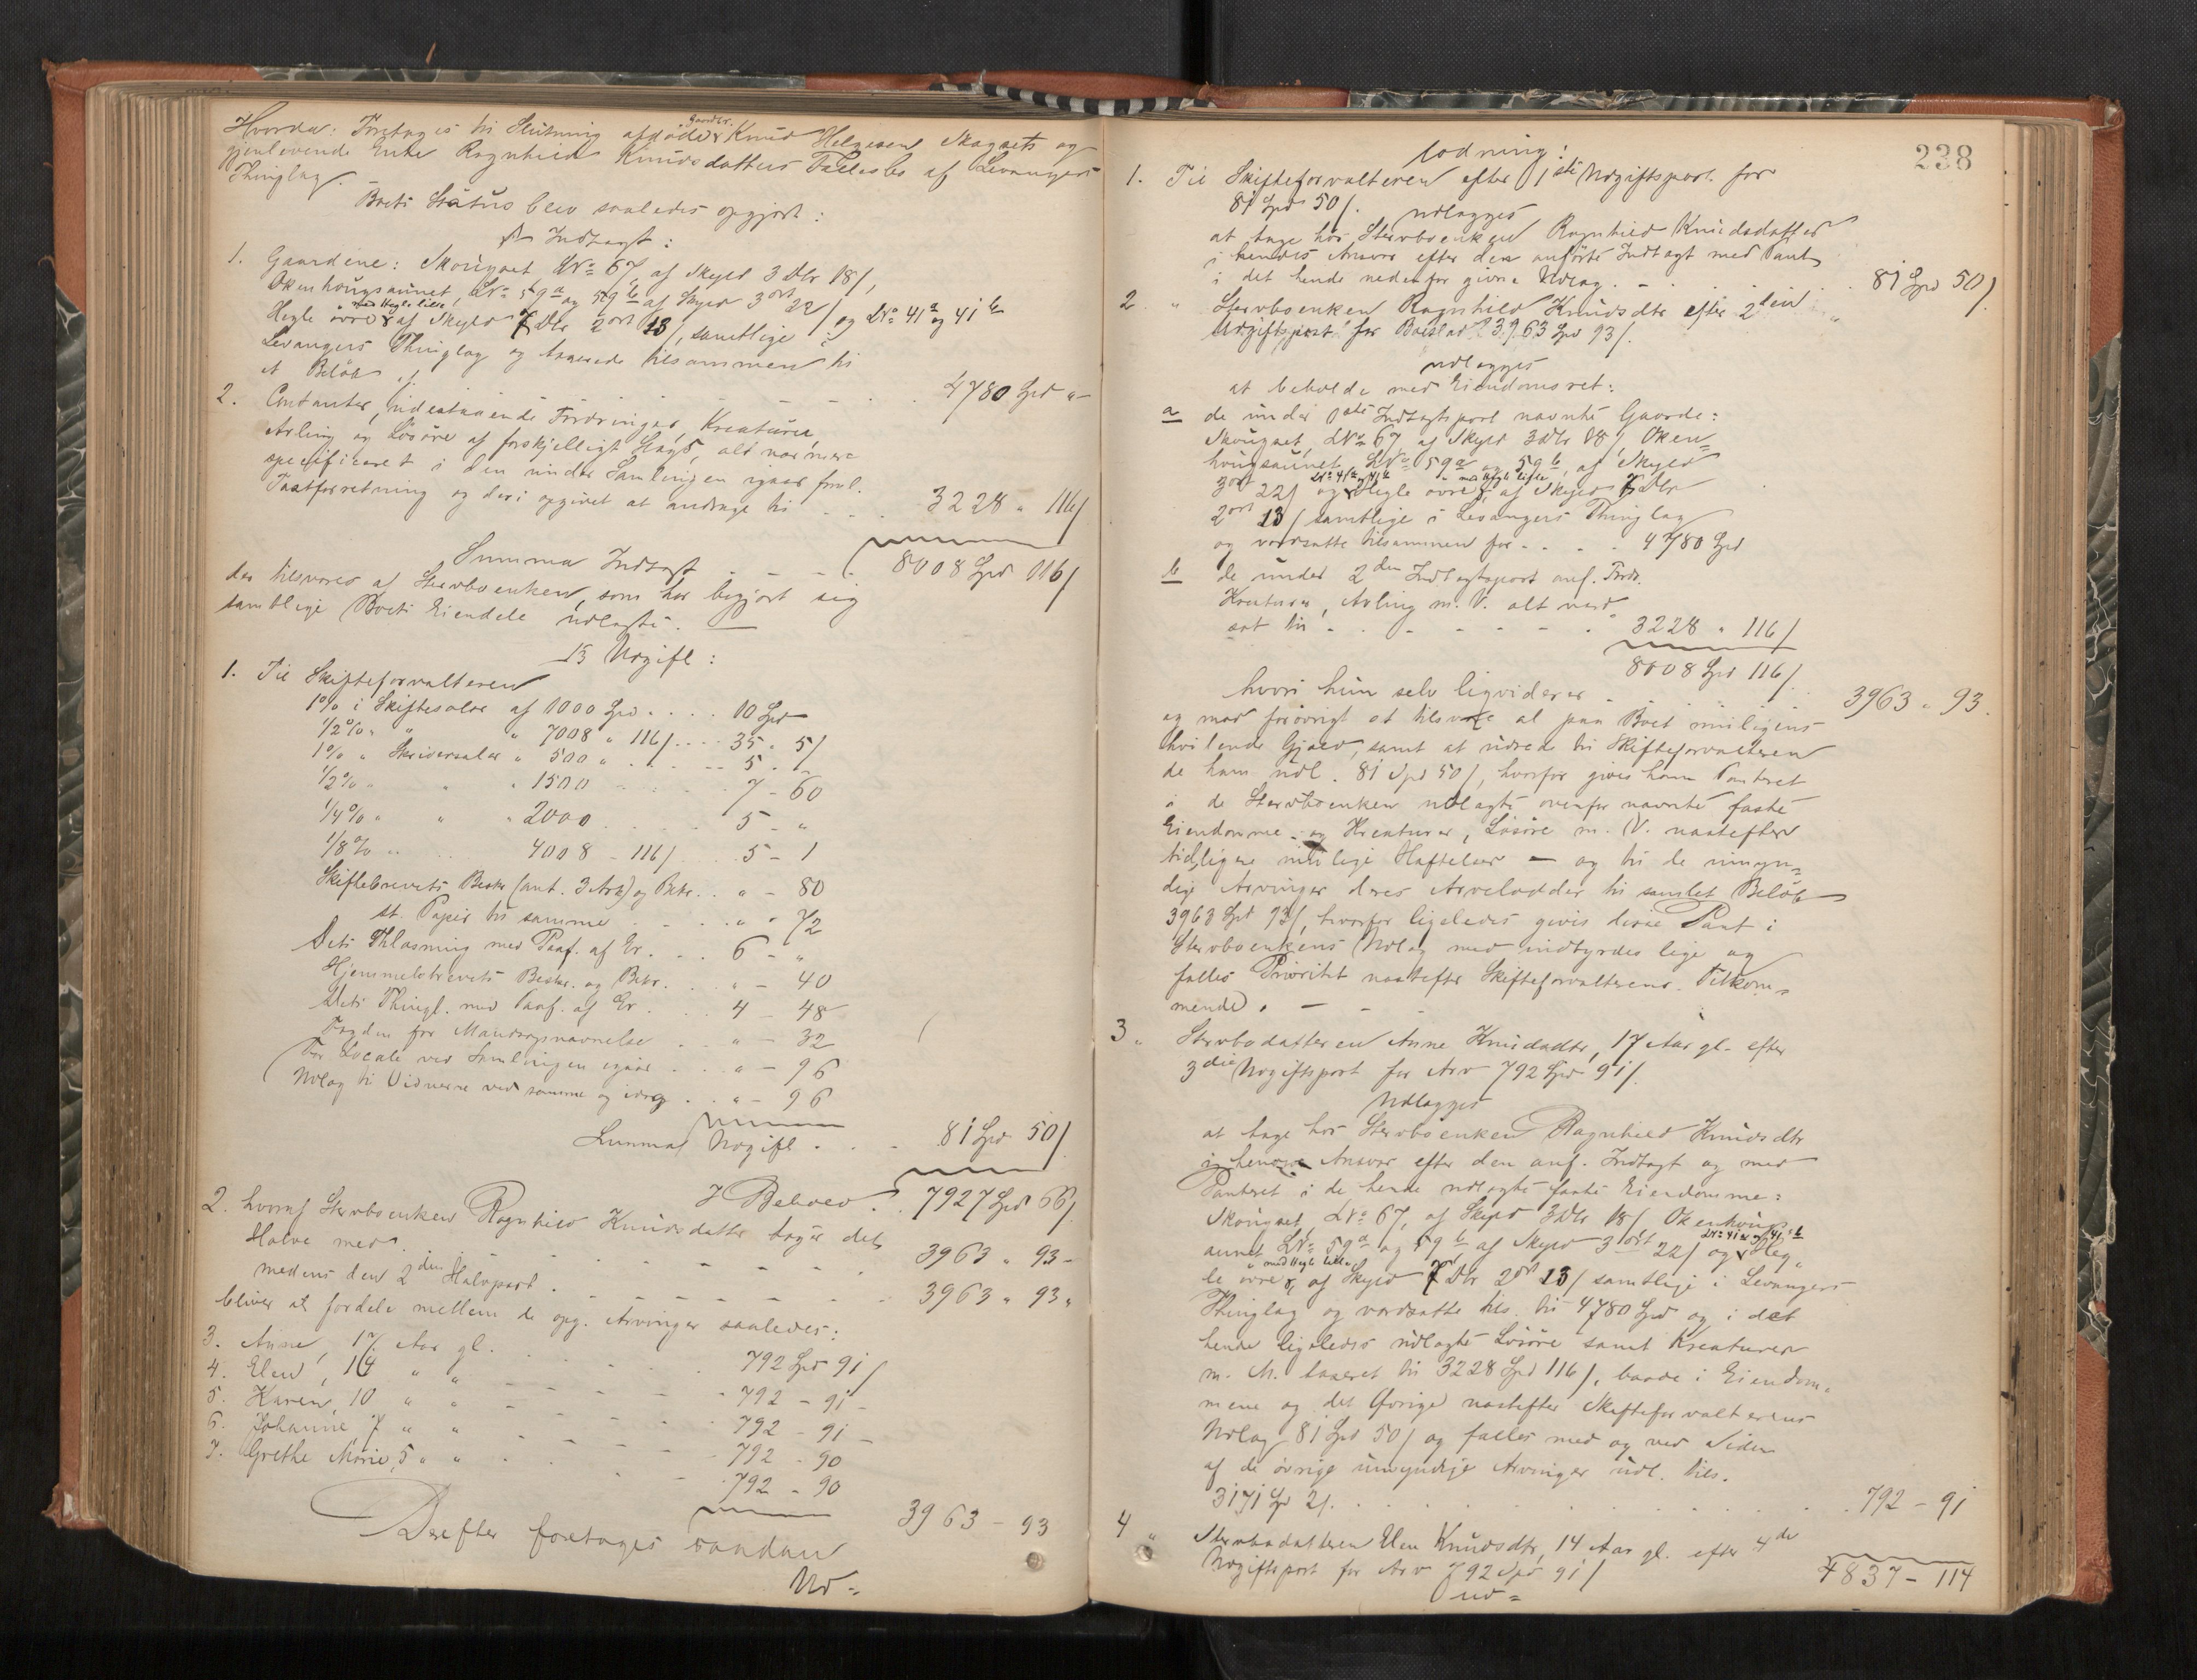 Hvorda: Foretoges til Slutning afdöde Gaardbr. Knud Helgesens Skognæs og
gjenlevende Enke Ragnhild Knudsdatters Fællesbo af Levangers
Thinglag.
Boets Status blev saaledes opgjort:
A Indtægt:
1. Gaardene: Skougnæs, LNo 67, af Skyld 3 Dlr 18 /,
Okenhougsaunet, LNo 59 a og 59 b af Skyld 3 ort 22 / og LNo 41 a og 41 b
Hegle övre med Hegle lille af Skyld 7 Dlr 2 ort 13 /, samtlige i
Levangers Thinglag og taxerede tilsammen til
et Belöb af . . . 4780 Spd „ -
2. Contanter, udestaaende Fordringer, Kreaturer,
Avling og Lösöre af forskjelligt Slags, alt nærmere
specificeret i den under Samlingen igaar freml.
Taxtforretning og deri opgivet at andrage til . . . 3228 „ 116 /
Summa Indtægt . . . 8008 Spd 116 /
der tilsvares af Stervboenken, som har begjært sig
samtlige Boets Eiendele udlagte.
B Udgift:
1. Til Skifteforvalteren
1% i Skiftesalær af 1000 Spd . . . 10 Spd
1/2% „ „ „ 7008 „ 116 / . . . 35 „ 5 /
1% „ Skriversalær „ 500 „ . . . 5 „ -
1/2% „ „ „ 1500 . . . 7 - 60
1/4% „ „ „ 2000 . . . 5 - „
1/8% „ „ 4008 - 116 / . . . 5 - 1
Skiftebrevets Beskr. (ant. 3 Ark) og Bekr. . . „ - 80
st. Papir til samme . . . „ „ 72
Dets Thlæsning med Paaf. af Er. . . . 6 - „
Hjemmelsbrevets Beskr. og Bekr. . . . „ - 40
Dets Thingl. med Paaf. af Er . . . 4 - 48
Fogden for Mandsopnævnelse . . . „ - 32
For Locale ved Samlingen igaar . . . „ - 96
Udlæg til Vidnerne ved samme og idag . . „ - 96
Summa Udgift . . . 81 Spd 50 /
I Behold . . 7927 Spd 66 /
2. hvoraf Stervboenken Ragnhild Knudsdatter tager det
Halve med . . . 3963 „ 93 -
medens den 2den Halvpart . . . 3963 „ 93 „
bliver at fordele mellem de opg. Arvinger saaledes:
3. Anne, 17 Aar gl. . . . 792 Spd 91 /
4. Elen, 14 „ „ . . . 792 - 91 -
5. Karen, 10 „ „ . . . 792 - 91 -
6. Johanne, 7 „ „ . . . 792 - 90
7. Grethe Marie, 5 „ „ . . . 792 - 90
3963 - 93
Derefter foretoges saadan
Ud=
238
lodning:
1. Til Skifteforvalteren efter 1ste Udgiftspost for
81 Spd 50 /.
udlægges
at tage hos Stervboenken Ragnhild Knudsdatter
i hendes Ansvar efter den anförte Indtægt med Pant
i det hende nedenfor givne Udlæg . . . 81 Spd 50 /
2. „ Stervboenken Ragnhild Knudsdtr efter 2den
Udgiftspost for Boeslod 3963 Spd 93 /.
udlægges
at beholde med Eiendomsret:
a de under 1ste Indtægtspost nævnte Gaarde:
Skougnæs, LNo 67 af Skyld 3 Dlr 18 /, Oken=
hougsaunet, LNo 59 a og 59 b, af Skyld
3 ort 22 / og LNo 41 a og 41 b Hegle övre „ med Hegle lille, af Skyld 7 Dlr
2 ort 13 / samtlige i Levangers Thinglag
og værdsatte tilsammen for . . . 4780 Spd
b de under 2den Indtægtspost anf. Fordr.
Kreaturer, Avling m. V. alt værd
sat til . . . 3228 „ 116 /
8008 Spd 116 /
hvori hun selv ligviderer . . . 3963 „ 93.
og mod forövrigt at tilsvare al paa Boet muligens
hvilende Gjæld, samt at udrede til Skifteforvalteren
de ham udl. 81 Spd 50 /, hvorfor gives ham Panteret
i de Stervboenken udlagte ovenfor nævnte faste
Eiendomme og Kreaturer, Lösöre m. V. næstefter
tidligere mulige Hæftelser — og til de umyn=
dige Arvinger deres Arvelodder til samlet Belöb
3963 Spd 93 /, hvorfor ligeledes gives disse Pant i
Stervboenkens Udlæg med indbyrdes lige og
fælles Prioritet næstefter Skifteforvalterens Tilkom=
mende. — - -
3 „ Stervbodatteren Anne Knudsdtr, 17 Aar gl. efter
3die Udgiftspost for Arv 792 Spd 91 /.
Udlægges
at tage hos Stervboenken Ragnhild Knudsdtr
i hendes Ansvar efter den anf. Indtægt og med
Panteret i de hende udlagte faste Eiendomme:
Skougnæs, LNo 67, af Skyld 3 Dlr 18 /, Okenhougs
aunet LNo 59 a og 59 b af Skyld 3 ort 22 / og LNo 41 a og 41 b Heg„
le övre „ med Hegle lille, af Skyld 7 Dlr 2 ort 13 / samtlige i Levangers
Thinglag og værdsatte tils. til 4780 Spd og i det
hende ligeledes udlagte Lösöre samt Kreaturer
m. M. taxeret til 3228 Spd 116 /, baade i Eiendom„
mene og det Övrige næstefter Skifteforvalterens
Udlæg 81 Spd 50 / og fælles med og ved Siden
af de övrige umyndige Arvinger udl. tils.
3171 Spd 2 /. . . . 792 - 91
4 „ Stervbodatteren Elen Knudsdtr, 14 Aar gl. efter 4de
Udgiftspost for Arv 792 Spd 91 /
ud=
4837 - 114